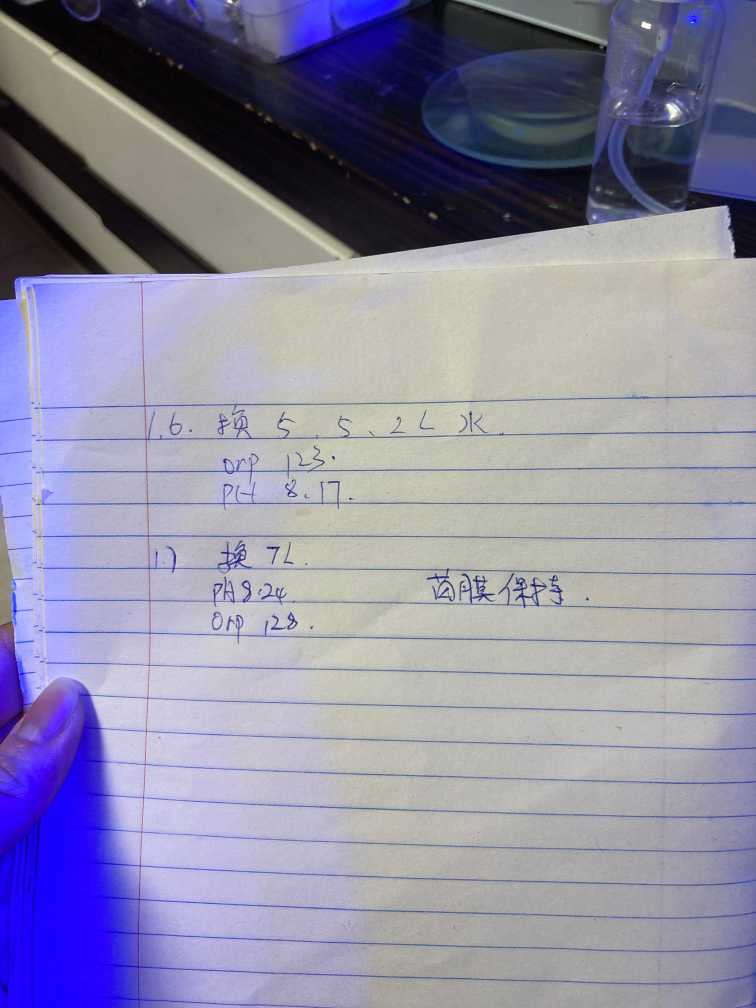 1.6. 换 5、5、2L 水.
orp 123.
PH 8.17.
1.7 换 7L.
PH 8.24. 菌膜保持.
orp 128.